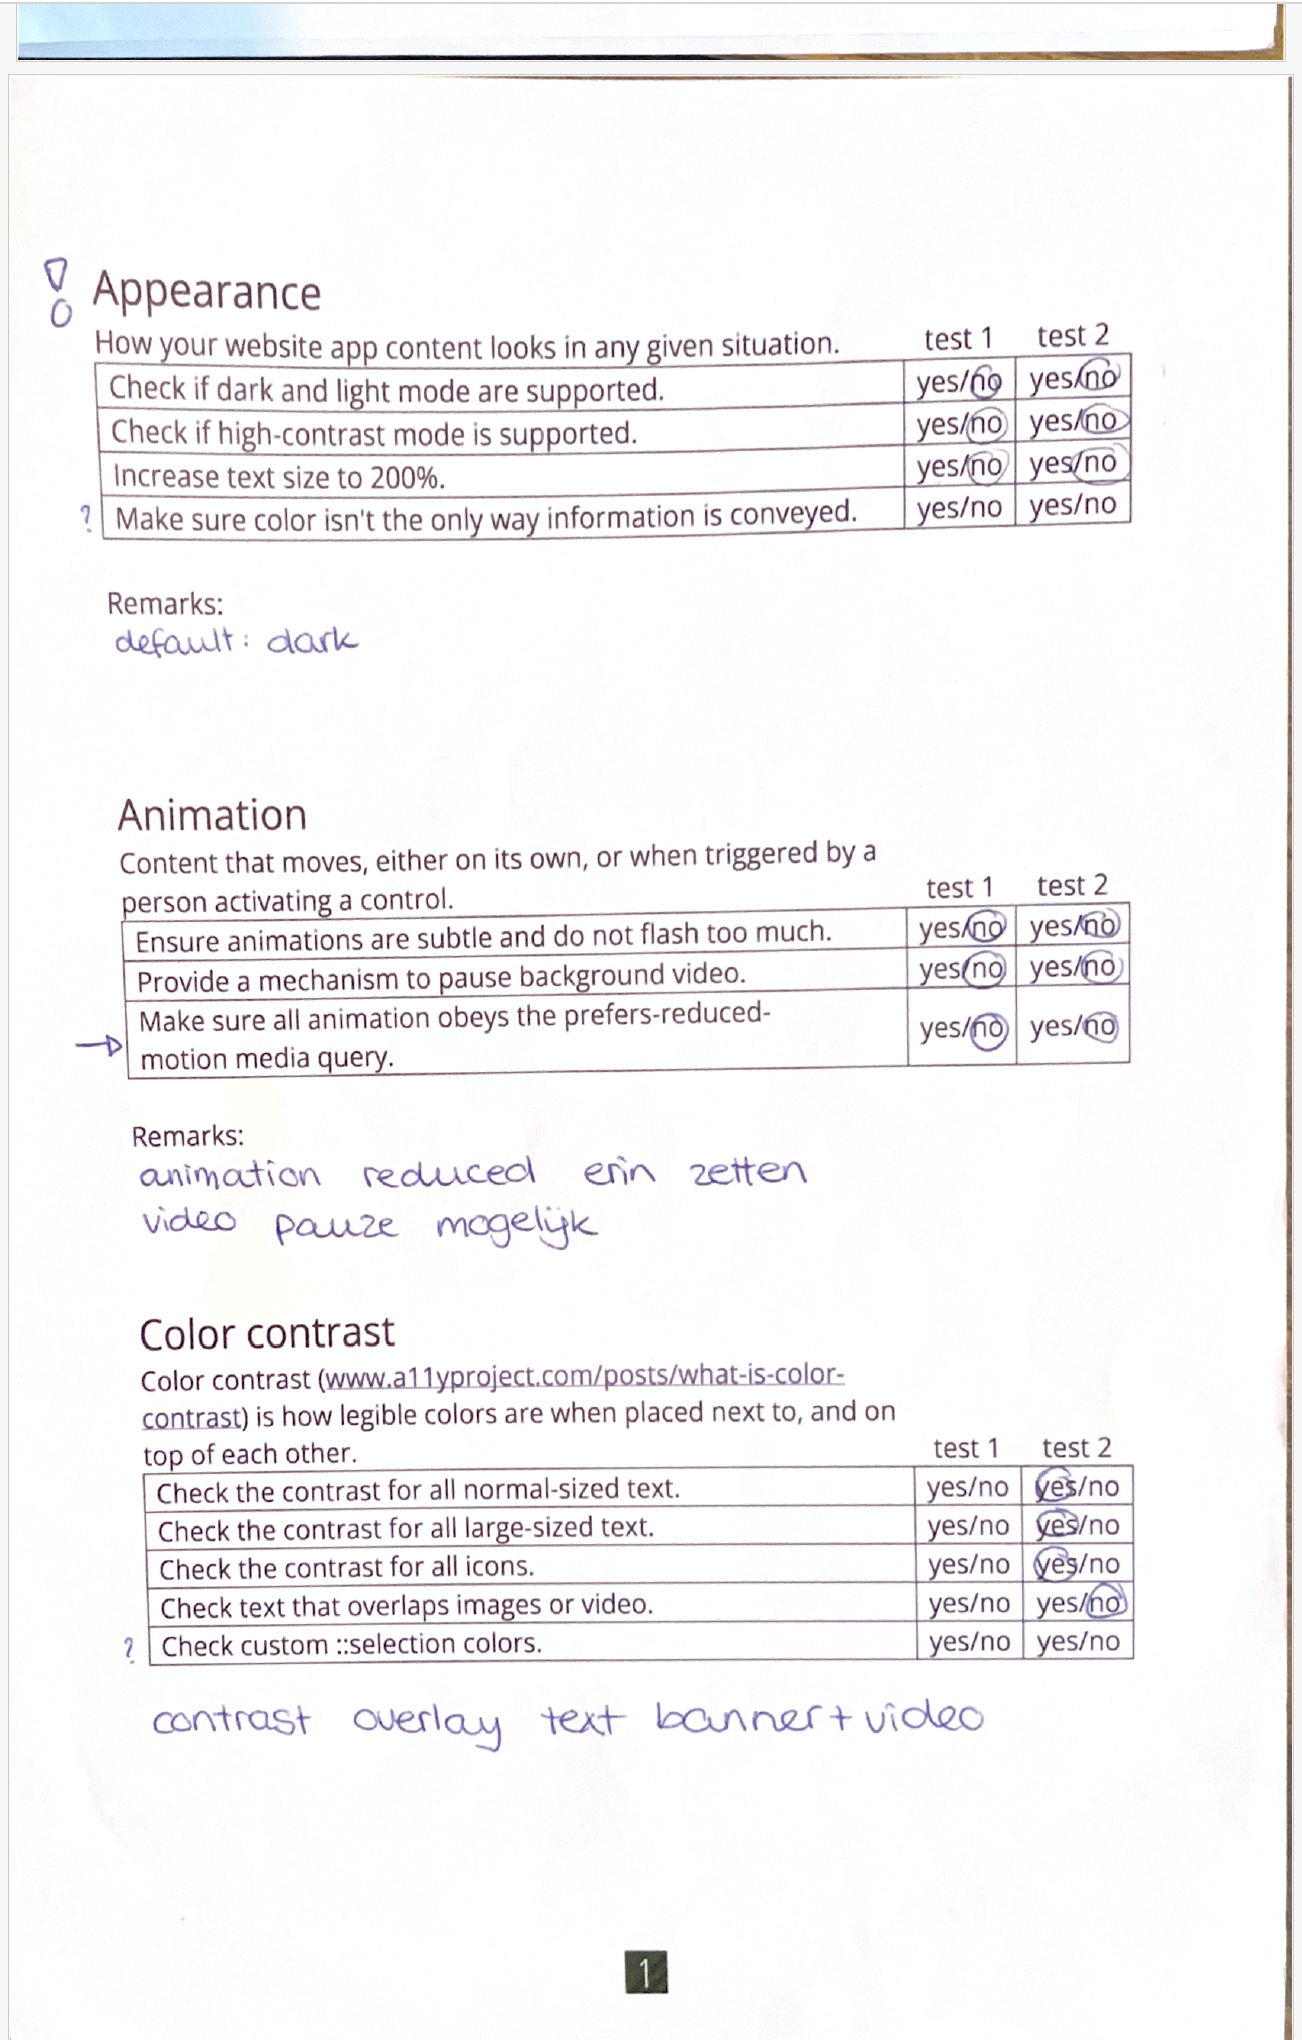 Appearance
How your website app content looks in any given situation. test 1 test 2
Check if dark and light mode are supported. yes/no yes/no
Check if high-contrast mode is supported. yes/no yes/no
Increase text size to 200%. yes/no yes/no
? Make sure color isn't the only way information is conveyed. yes/no yes/no
Remarks:
default: dark
Animation
Content that moves, either on its own, or when triggered by a
person activating a control. test 1 test 2
Ensure animations are subtle and do not flash too much. yes/no yes/no
Provide a mechanism to pause background video. yes/no yes/no
Make sure all animation obeys the prefers-reduced-
motion media query. yes/no yes/no
Remarks:
animation reduced erin zetten
video pauze mogelijk
Color contrast
Color contrast (www.a11yproject.com/posts/what-is-color-
contrast) is how legible colors are when placed next to, and on
top of each other. test 1 test 2
Check the contrast for all normal-sized text. yes/no yes/no
Check the contrast for all large-sized text. yes/no yes/no
Check the contrast for all icons. yes/no yes/no
Check text that overlaps images or video. yes/no yes/no
? Check custom ::selection colors. yes/no yes/no
contrast overlay text banner + video
1